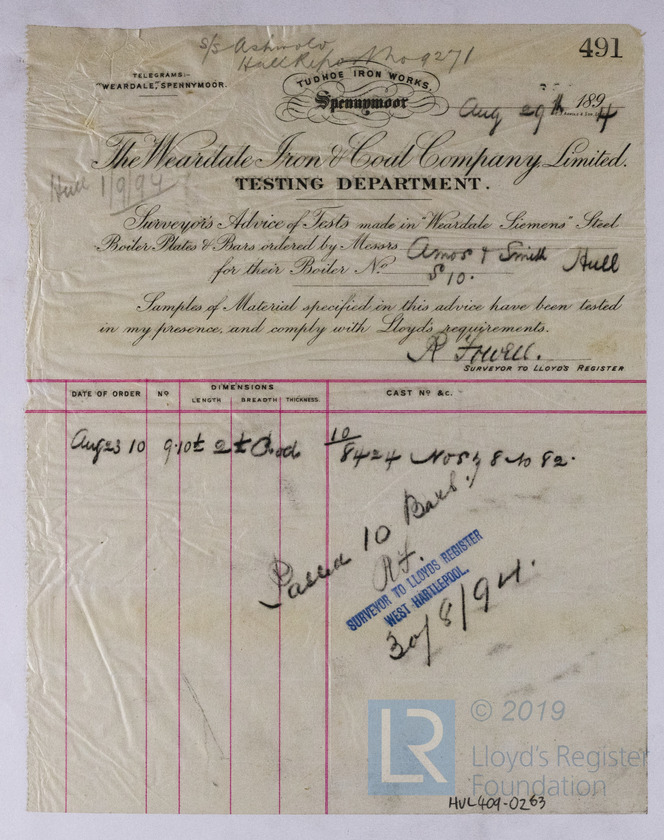 s/s Ashwold
Hull Report No 9271
491
TELEGRAMS:-
"WEARDALE," SPENNYMOOR.
TUDHOE IRON WORKS,
Spennymoor
Aug 29th 1894
The Weardale Iron & Coal Company, Limited.
TESTING DEPARTMENT.
Hull 1/9/94
Surveyor's Advice of Tests made in "Weardale Siemens" Steel
Boiler Plates & Bars ordered by Messrs Amos & Smith Hull
for their Boiler No. S10.
Samples of Material specified in this advice have been tested
in my presence, and comply with Lloyd's requirements.
R Fowell.
SURVEYOR TO LLOYD'S REGISTER
DATE OF ORDER No DIMENSIONS CAST No &c.
LENGTH BREADTH THICKNESS.
Aug 23 10 9.10 2 10
8424 Nos 8 to 82.
Passed 10 Bars.
R.F.
SURVEYOR TO LLOYDS REGISTER
WEST HARTLEPOOL.
30/8/94.
LR
© 2019
Lloyd's Register
Foundation
HUL409-0263